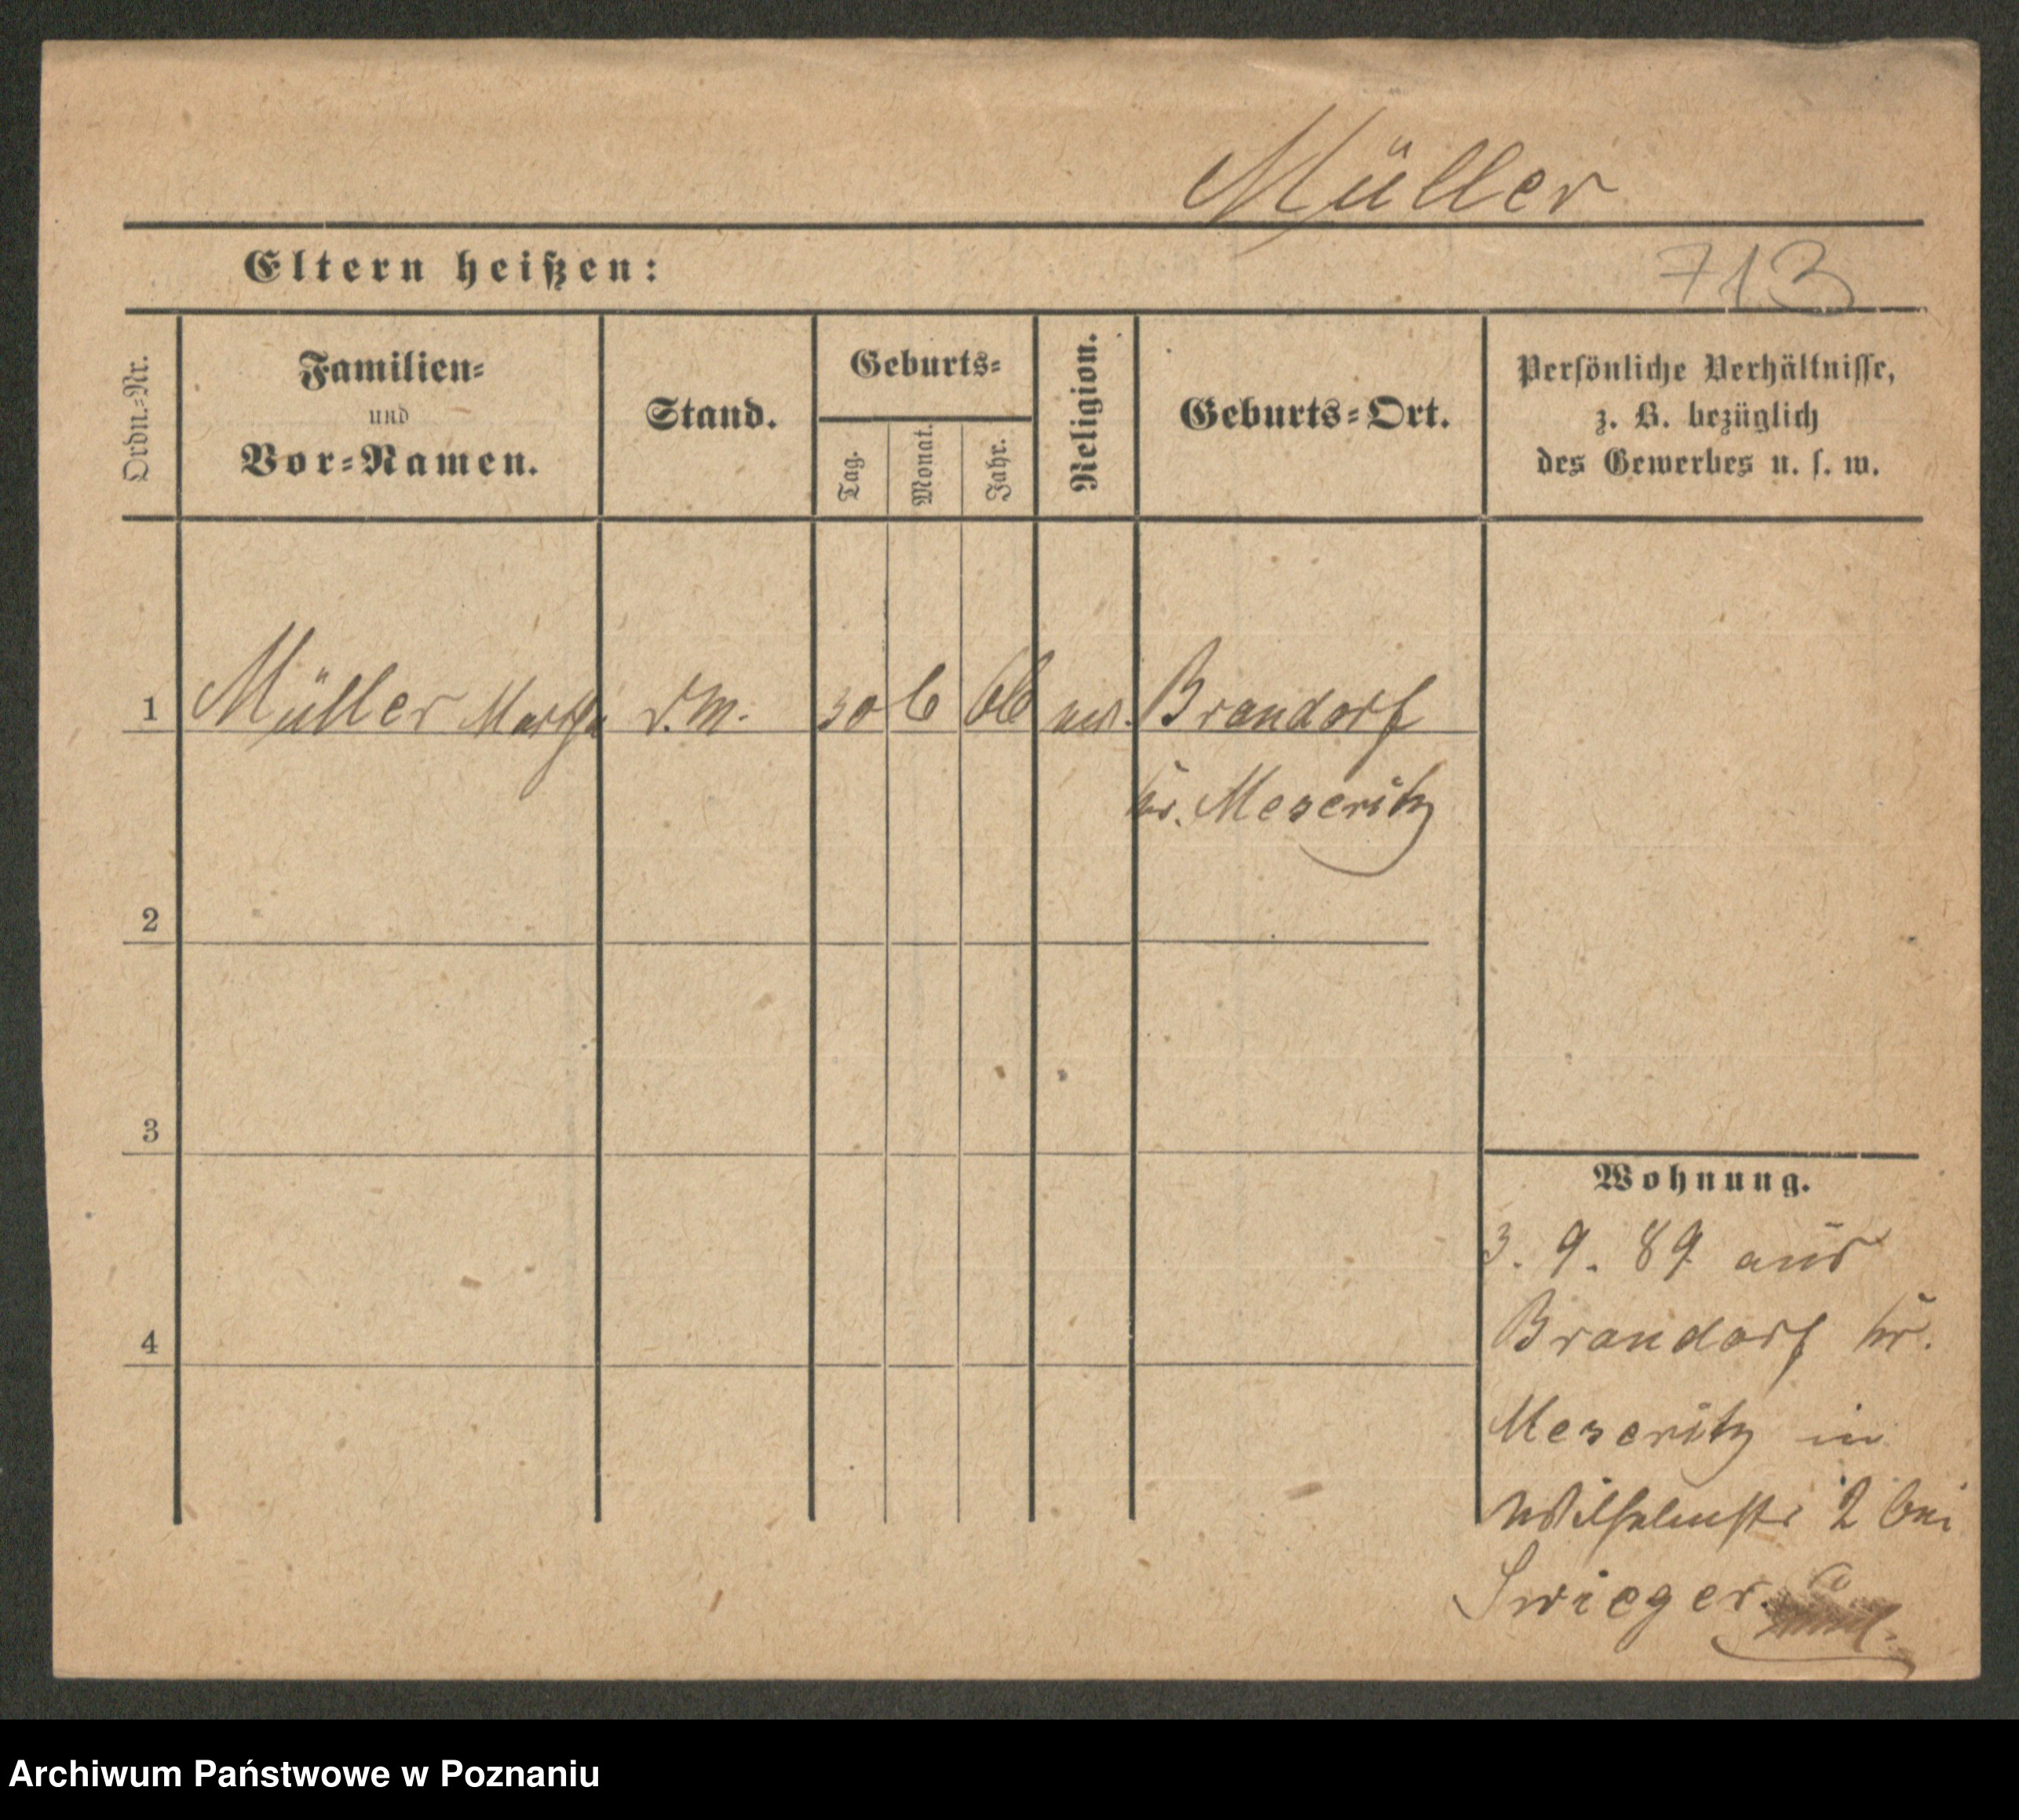 Müller
Eltern heißen:
713
Ordn.-Nr.
Familien-
und
Vor-Namen.
Stand.
Geburts-
Tag.
Monat.
Jahr.
Religion.
Geburts-Ort.
Persönliche Verhältnisse,
z. B. bezüglich
des Gewerbes u. s. w.
1 Müller Martha d. M. 30 6 66 Brandorf
Kr. Meseritz
2
3
4
Wohnung.
3. 9. 89 aus
Brandorf Kr.
Meseritz in
Wilhelmstr 2 bei
Swieger.
Archiwum Państwowe w Poznaniu